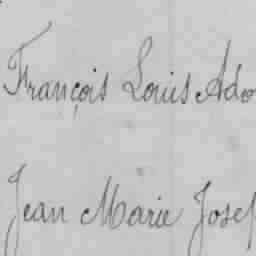 François Louis Ado
Jean Marie Josef